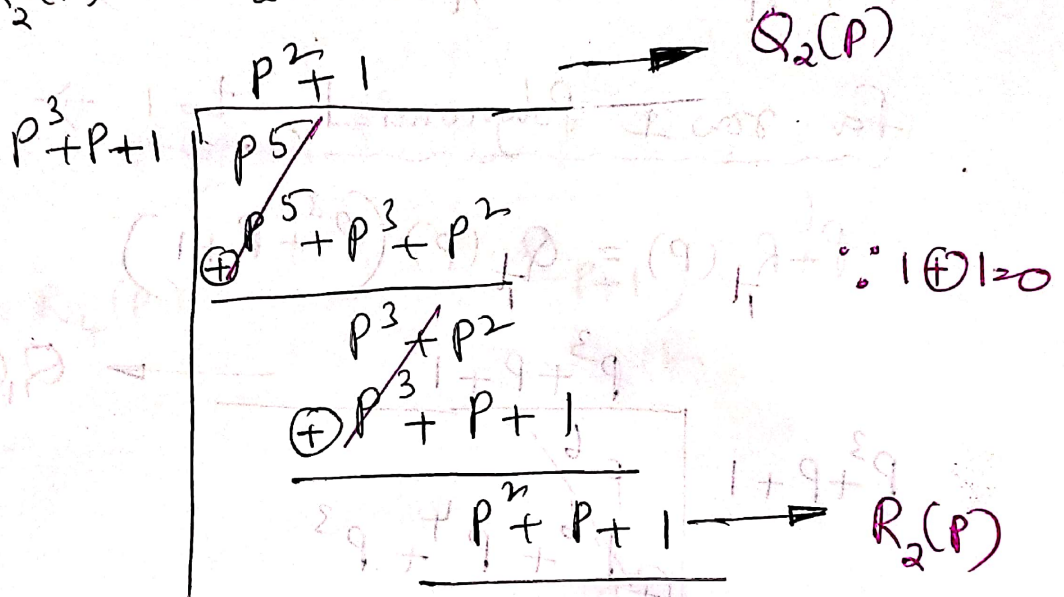 P² + 1 → Q₂(P)
P³+P+1
P5
⊕ P⁵ + P³ + P²
∵ 1 ⊕ 1=0
P³ + P²
⊕ P³ + P + 1
P² + P + 1 → R₂(P)